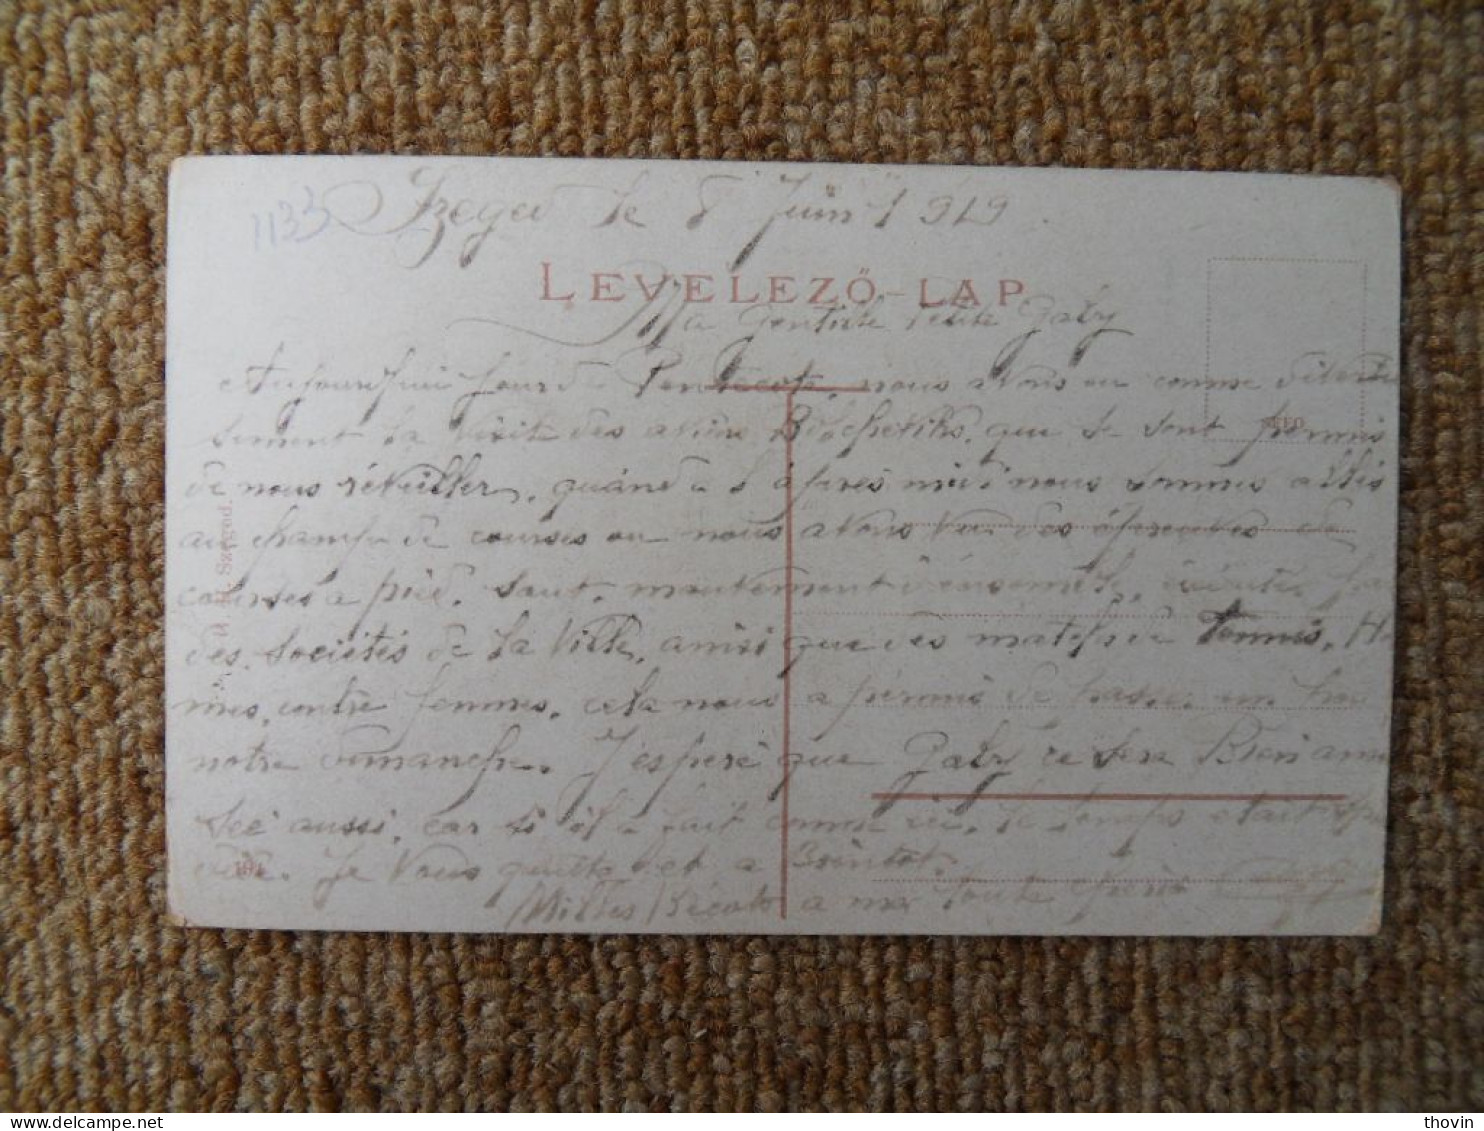 1133
Szeged le 8 Juin 1919
LEVELEZŐ-LAP
Ma Gentille Petite Gaby
Aujourd'hui jour de Pentecote, nous avons eu comme divertis
sement la visite des avions Bolcheviks, que se sont permis
de nous réveiller, quand à l'après midi nous sommes allés
au champ de courses ou nous avons vu des épreuves de
courses a pied, saut,
des sociétés de la Ville, ainsi que des matchs de Tennis, Ho
mes, contre femmes, cela nous a permis de passer un
notre dimanche. J'espere que Gaby ce sera Bien amu
see aussi, car si il a fait comme ici, le temps etait
Je vous quitte et a Bientot.
Milles Bécots a ma toute
U. H. Szeged.
thovin